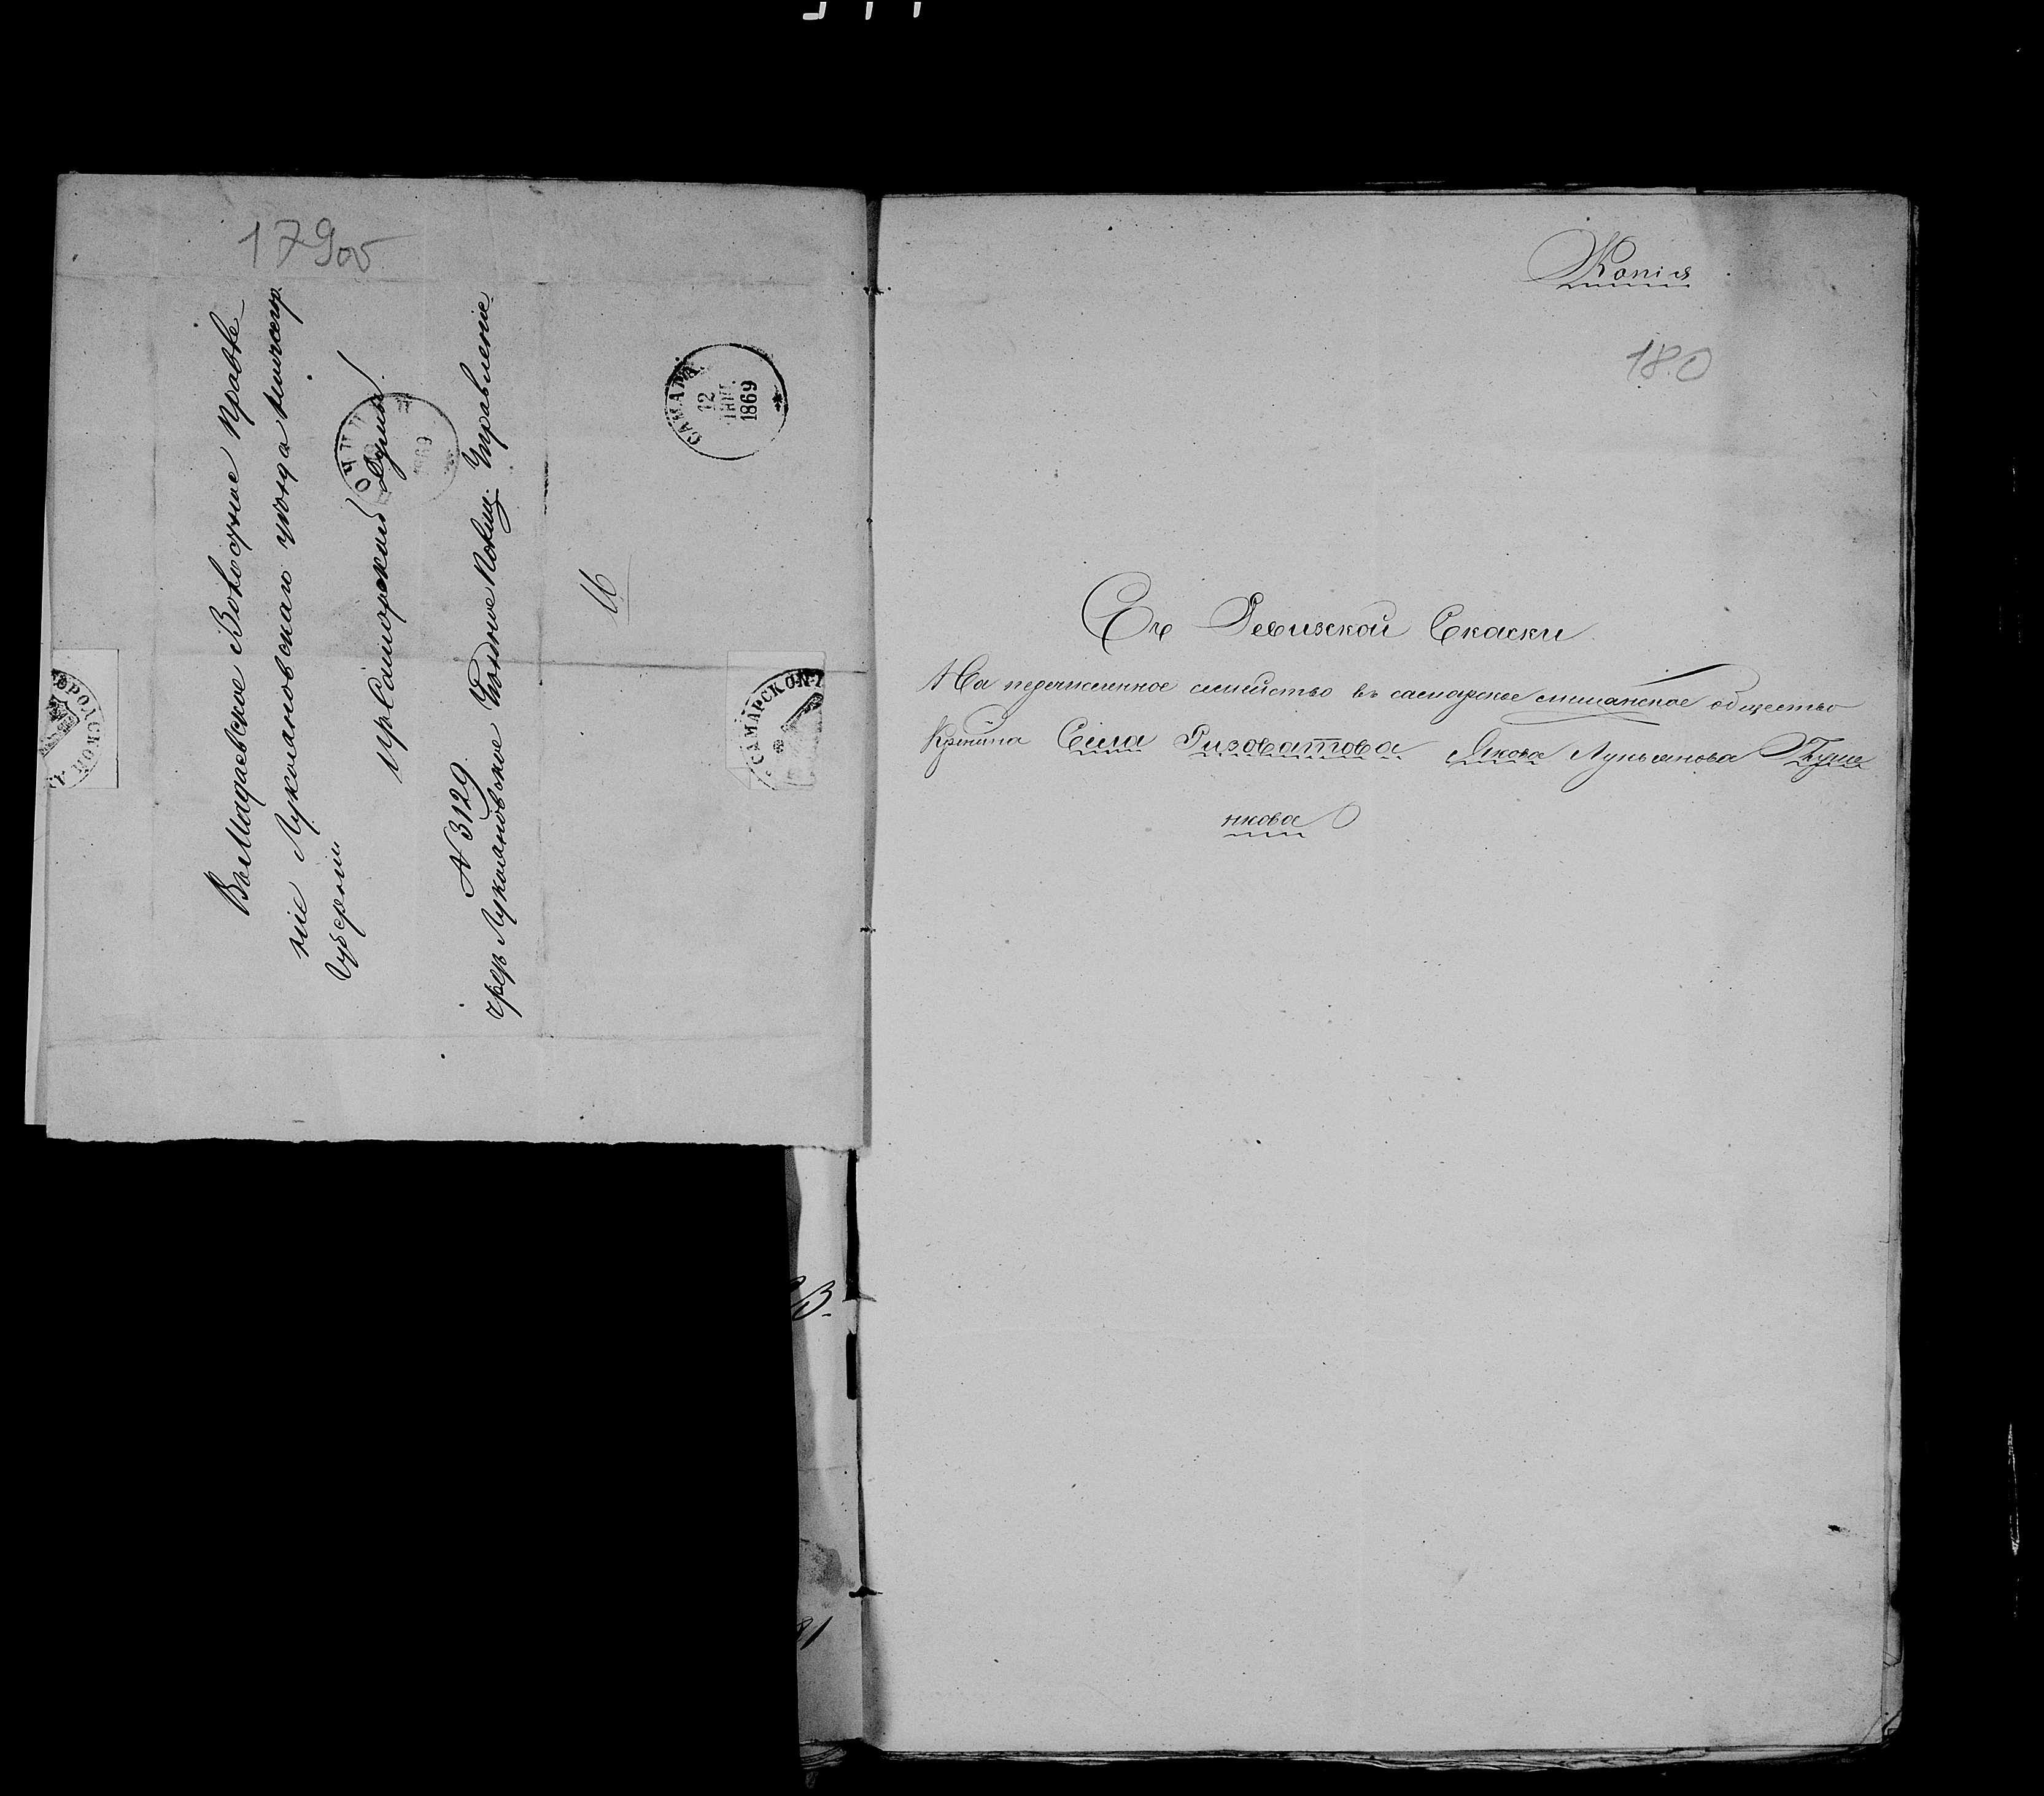 179 об
Въ Мадаевское Волостное Правле-
ніе Лукояновскаго уѣзда Нижегор.
Губерніи
изъ Самарской Думы.
№ 3129
чрезъ Лукояновское Уѣздное Полиц. Управленіе
САМАРА
12
1869
1869
САМАРСКОЙ
ГОРОДСКОЙ
Копія
180
Съ Ревизской Скаски
На перечисленное семейство въ самарское мѣщанское общество
Крѣстьнина Села Ризоватова Якова Лукьянова Куше
нкова